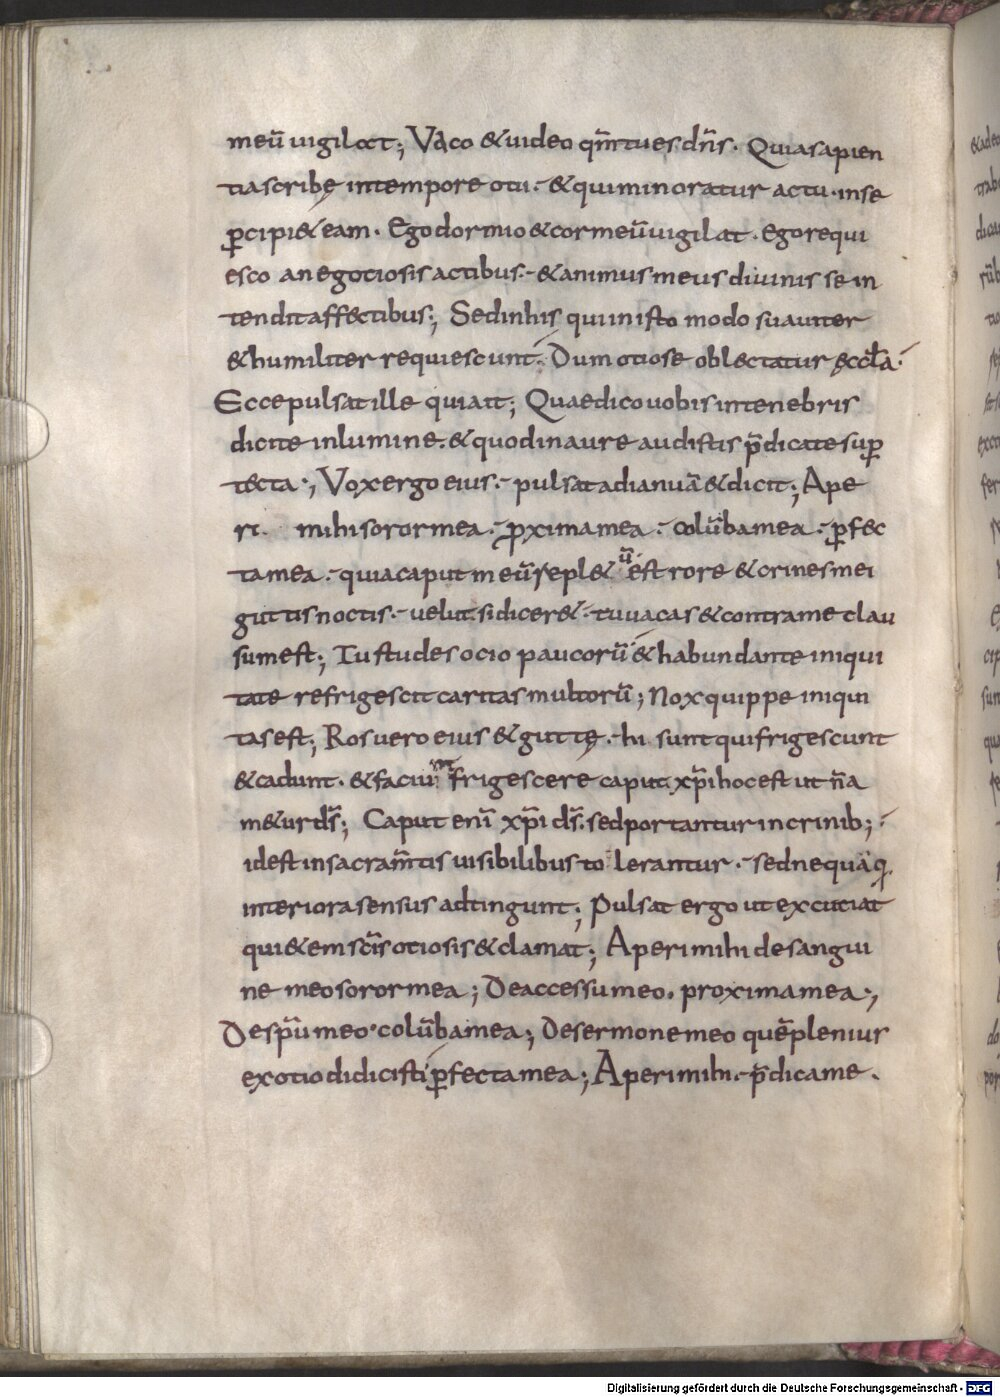 meū uigilat; Vaco & uideo qm̄ tu es dn̄s. Quia sapien
tia scribę in tempore otii. & qui minoratur actu. inse
p̱cipi& eam. Ego dormio & cor meū uigilat. Ego requi
esco a negociosis actibus. & animus meus diuinis se in
tendit affectibus; Sed in his qui in isto modo suauiter
& humiliter requiescunt. Dum otiose oblectatur ęccl̄a.
Ecce pulsat ille qui ait; Quae dico uobis in tenebris
dicite in lumine. & quod in aure audistis p̄dicate sup̱
tecta; Vox ergo eius. pulsat ad ianuā & dicit; Ape
ri. mihi soror mea. ꝓxima mea. colūba mea. p̱fec
ta mea. quia caput meū repl&ū est rore & crines mei
guttis noctis. uelut si dicer&. tu uacas & contra me clau
sum est; Tu studes ocio paucorū & habundante iniqui
tate refrigescit caritas multorū; Nox quippe iniqui
tas est; Ros uero eius & guttę. hi sunt qui frigescunt
& cadunt. & faciunt frigescere caput xp̄i hoc est ut n̄ a
m&ur ds̄; Caput enī xp̄i ds̄. sed portantur in crinib;
id est in sacram̄tis uisibilibus tolerantur. sed nequaq̄
interiora sensus adtingunt; Pulsat ergo ut excutiat
qui&em sc̄is otiosis & clamat; Aperi mihi de sangui
ne meo soror mea; De accessu meo. proxima mea;
De sp̄u meo. colūba mea; De sermone meo quē plenius
ex otio didicisti p̱fecta mea; Aperi mihi. p̄dica me.
Digitalisierung gefördert durch die Deutsche Forschungsgemeinschaft - DFG